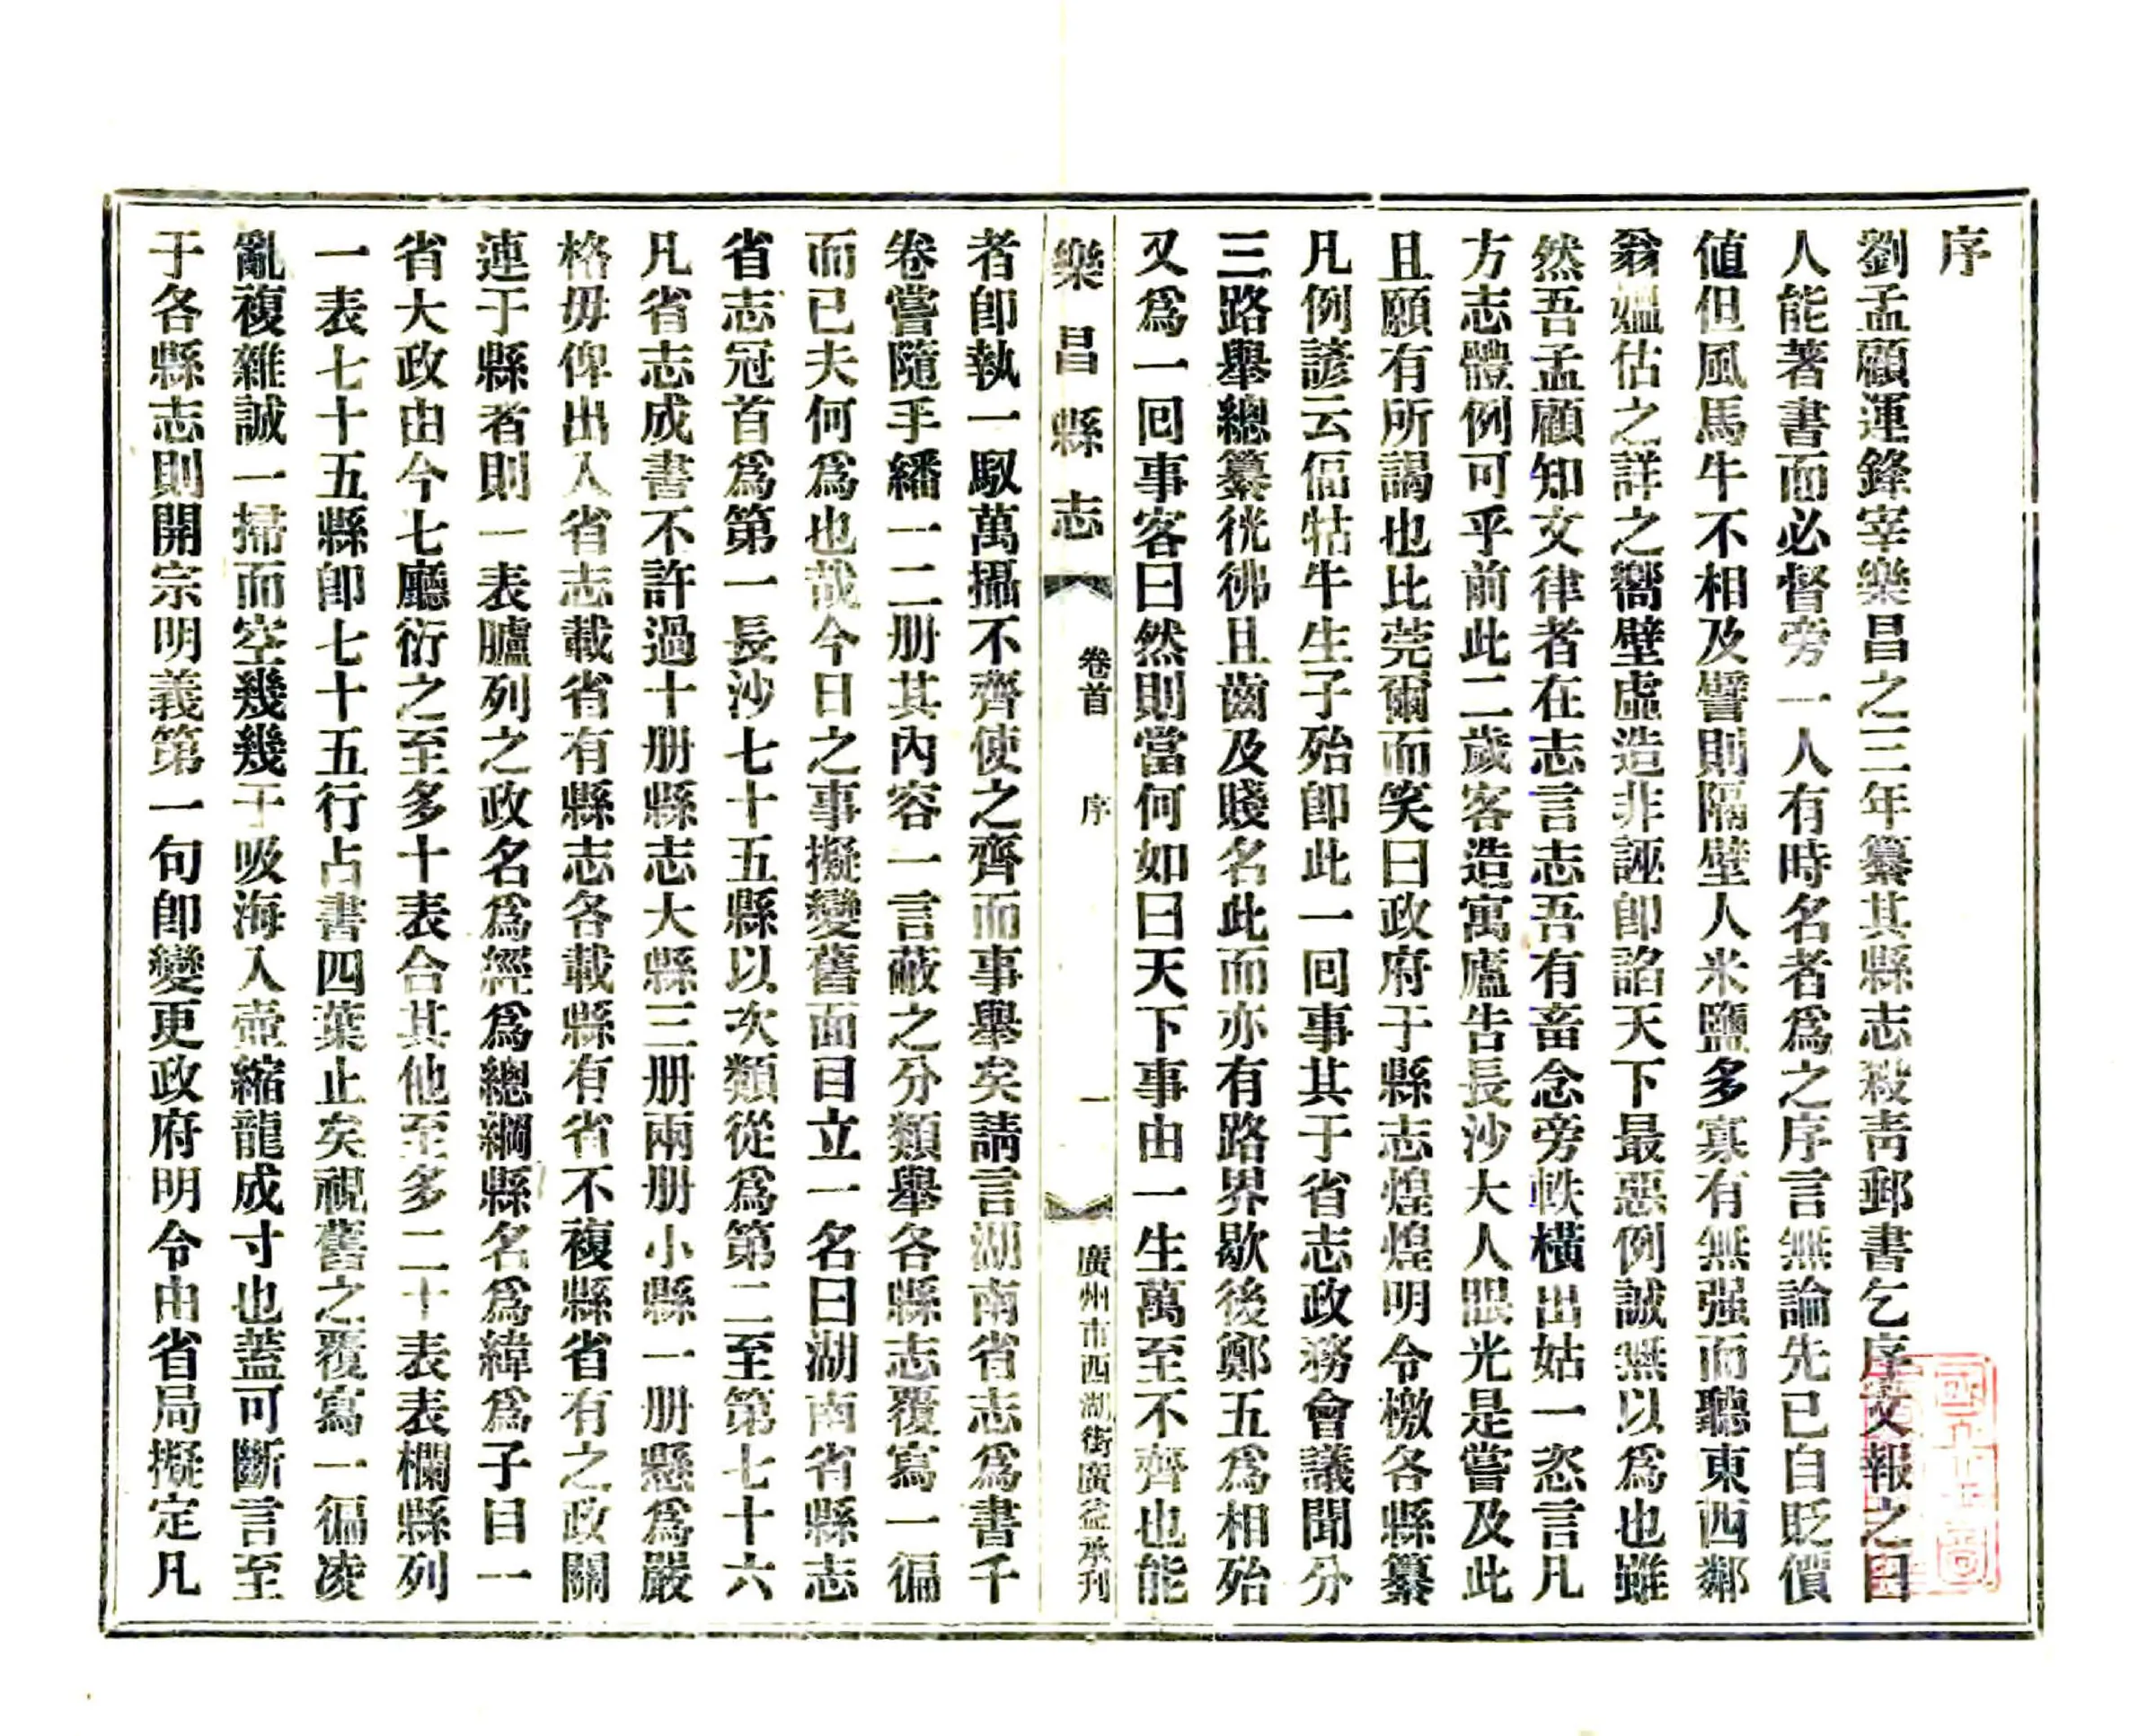 序
劉孟顧運鋒宰樂昌之三年纂其縣志殺靑郵書乞序文報之曰
人能著書而必督旁一人有時名者爲之序言無論先已自貶價
値但風馬牛不相及譬則隔壁人米鹽多寡有無强而聽東西鄰
翁媼估之詳之嚮壁虛造非誣卽諂天下最惡例誠無以爲也雖
然吾孟顧知文律者在志言志吾有畜念旁軼橫出姑一恣言凡
方志體例可乎前此二歲客造寓廬告長沙大人眼光是嘗及此
且願有所謁也比莞爾而笑曰政府于縣志煌煌明令檄各縣纂
凡例諺云偪牯牛生子殆卽此一囘事其于省志政務會議聞分
三路舉總纂彷彿且齒及賤名此而亦有路界歇後鄭五爲相殆
又爲一囘事客曰然則當何如曰天下事由一生萬至不齊也能
樂昌縣志
卷首
序
一
廣州市西湖街廣益承刊
者卽執一馭萬攝不齊使之齊而事舉矣請言湖南省志爲書千
卷嘗隨手繙一二册其內容一言蔽之分類舉各縣志覆寫一徧
而已夫何爲也哉今日之事擬變舊面目立一名曰湖南省縣志
省志冠首爲第一長沙七十五縣以次類從爲第二至第七十六
凡省志成書不許過十册縣志大縣三册兩册小縣一册懸爲嚴
格毋俾出入省志載省有縣志各載縣有省不複縣省有之政關
連于縣者則一表臚列之政名爲經爲總綱縣名爲緯爲子目一
省大政由今七廳衍之至多十表合其他至多二十表表欄縣列
一表七十五縣卽七十五行占書四葉止矣視舊之覆寫一徧凌
亂複雜誠一掃而空幾幾于吸海入壺縮龍成寸也蓋可斷言至
于各縣志則開宗明義第一句卽變更政府明令由省局擬定凡